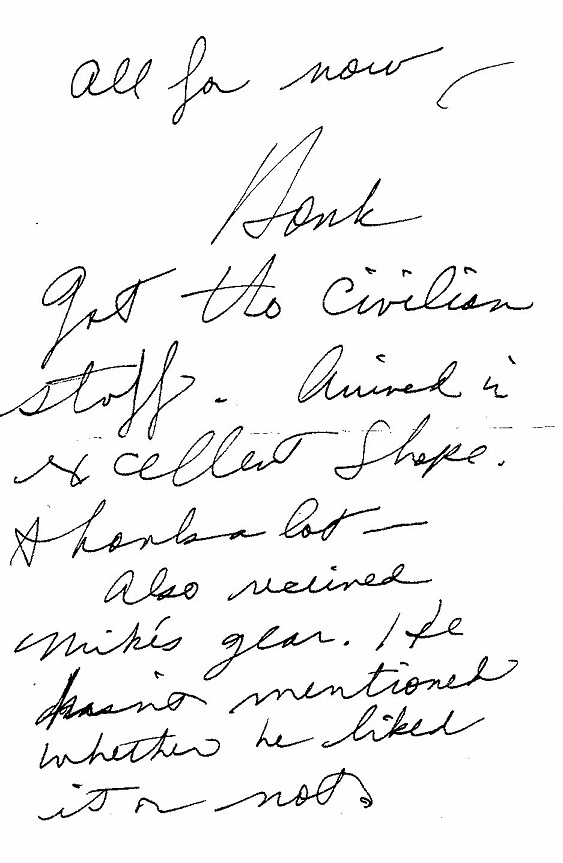 All for now
Hank
Got the civilian
stuff. Arrived in
excellent shape.
Thanks a lot —
Also received
Mike's gear. He
hasn't mentioned
whether he liked
it or not.